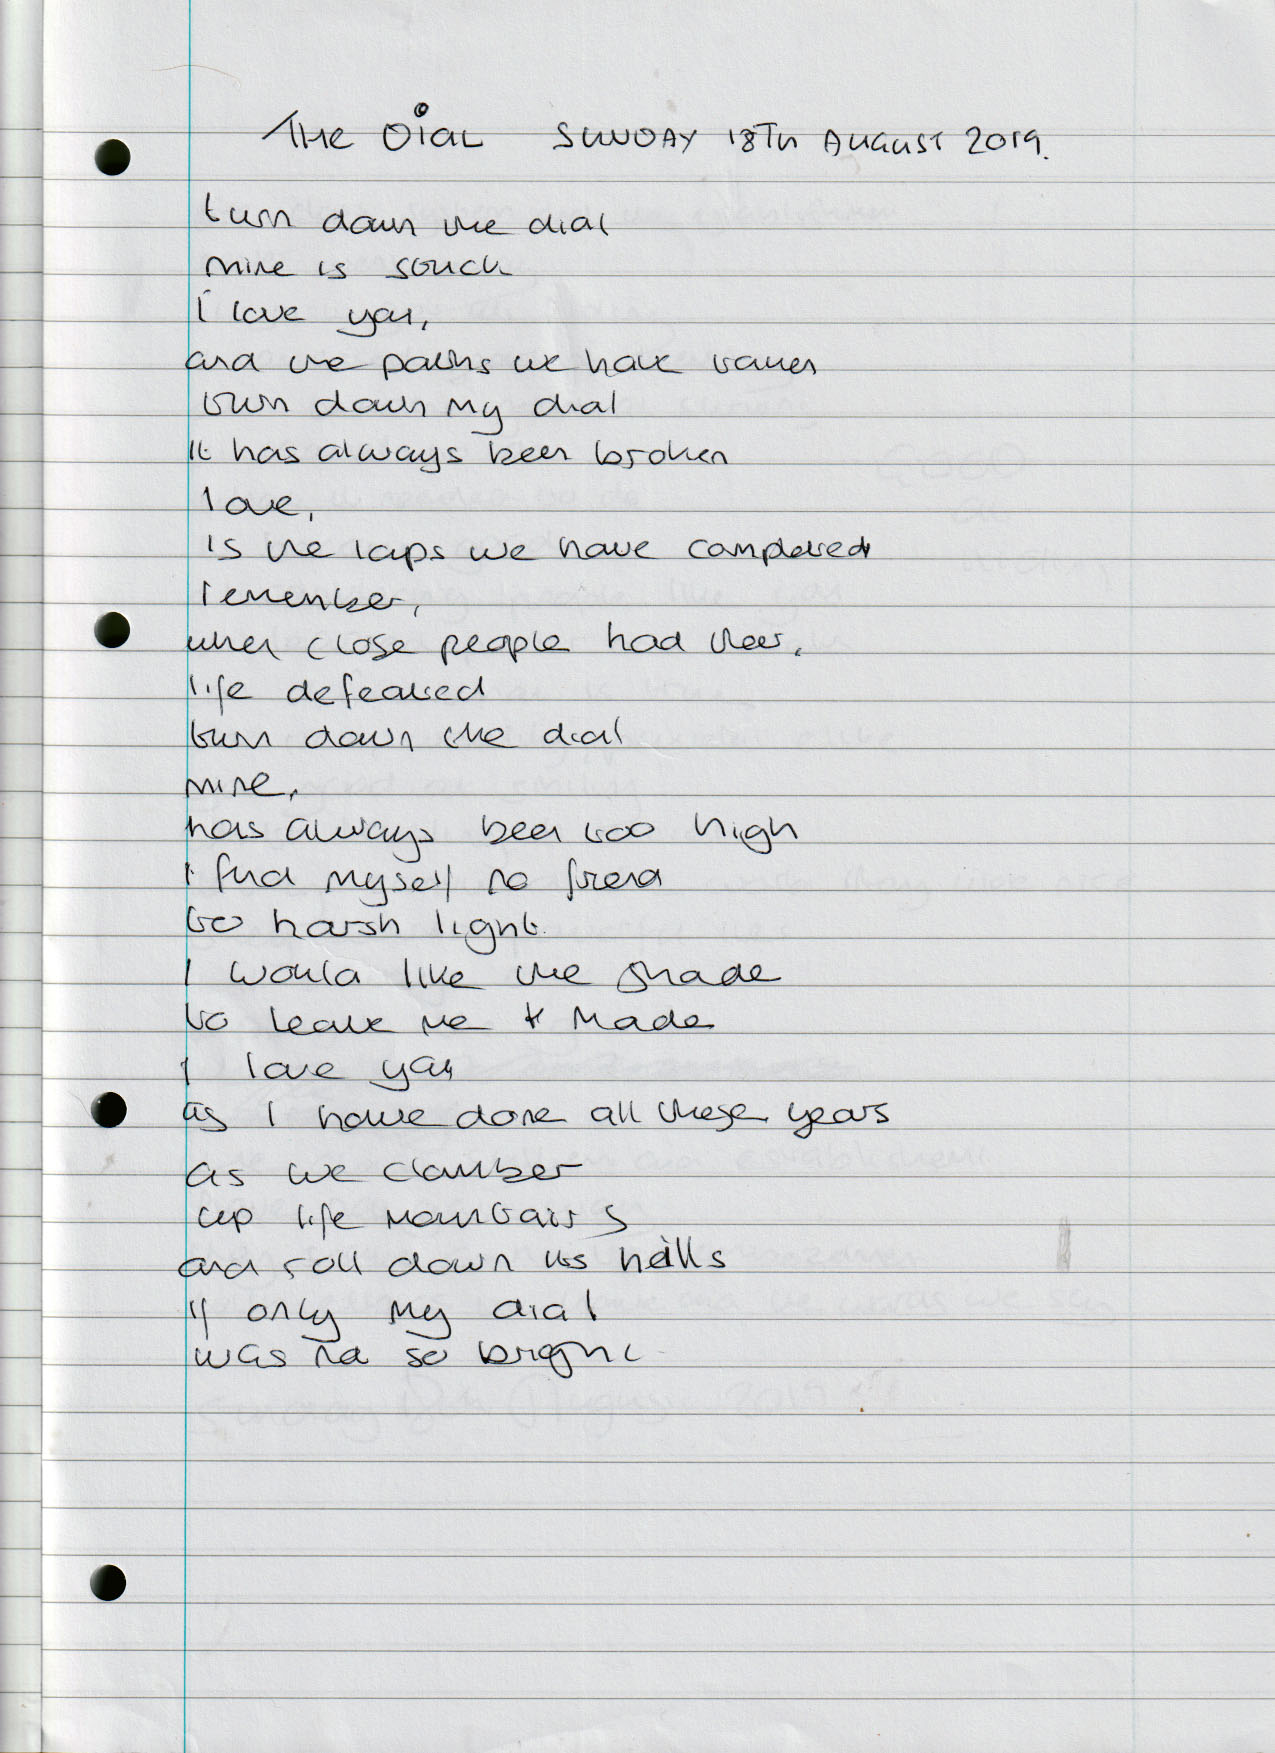 THE DIAL SUNDAY 18TH AUGUST 2019.
turn down the dial
mine is stuck
I love you,
and the paths we have taken
turn down my dial
it has always been broken
love,
is the laps we have completed
remember,
when close people had their,
life defeated
turn down the dial
mine,
has always been too high
I find myself no friend
to harsh light.
I would like the shade
to leave me + made
I love you
as I have done all these years
as we clamber
up life mountains
and roll down its hills
if only my dial
was not so bright